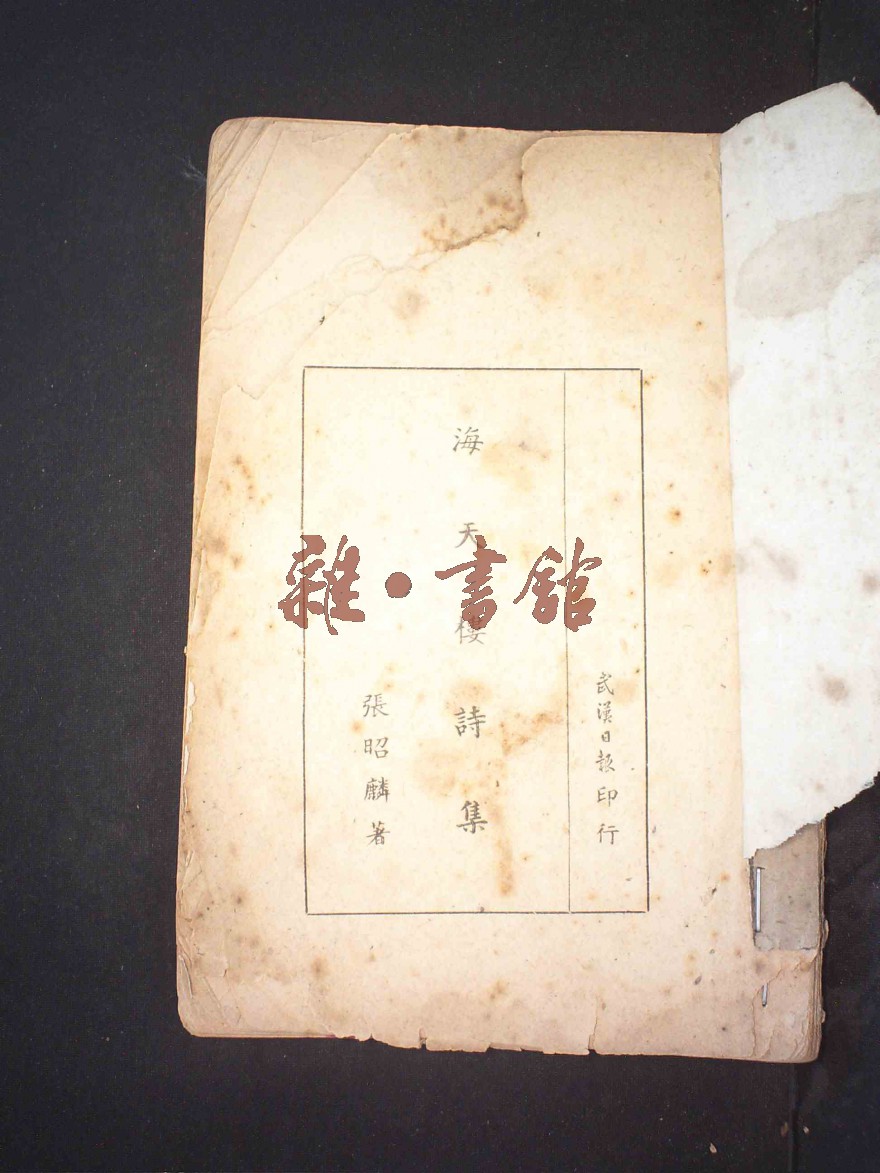 武漢日報印行
海天樓詩集
張昭麟著
雜·書館